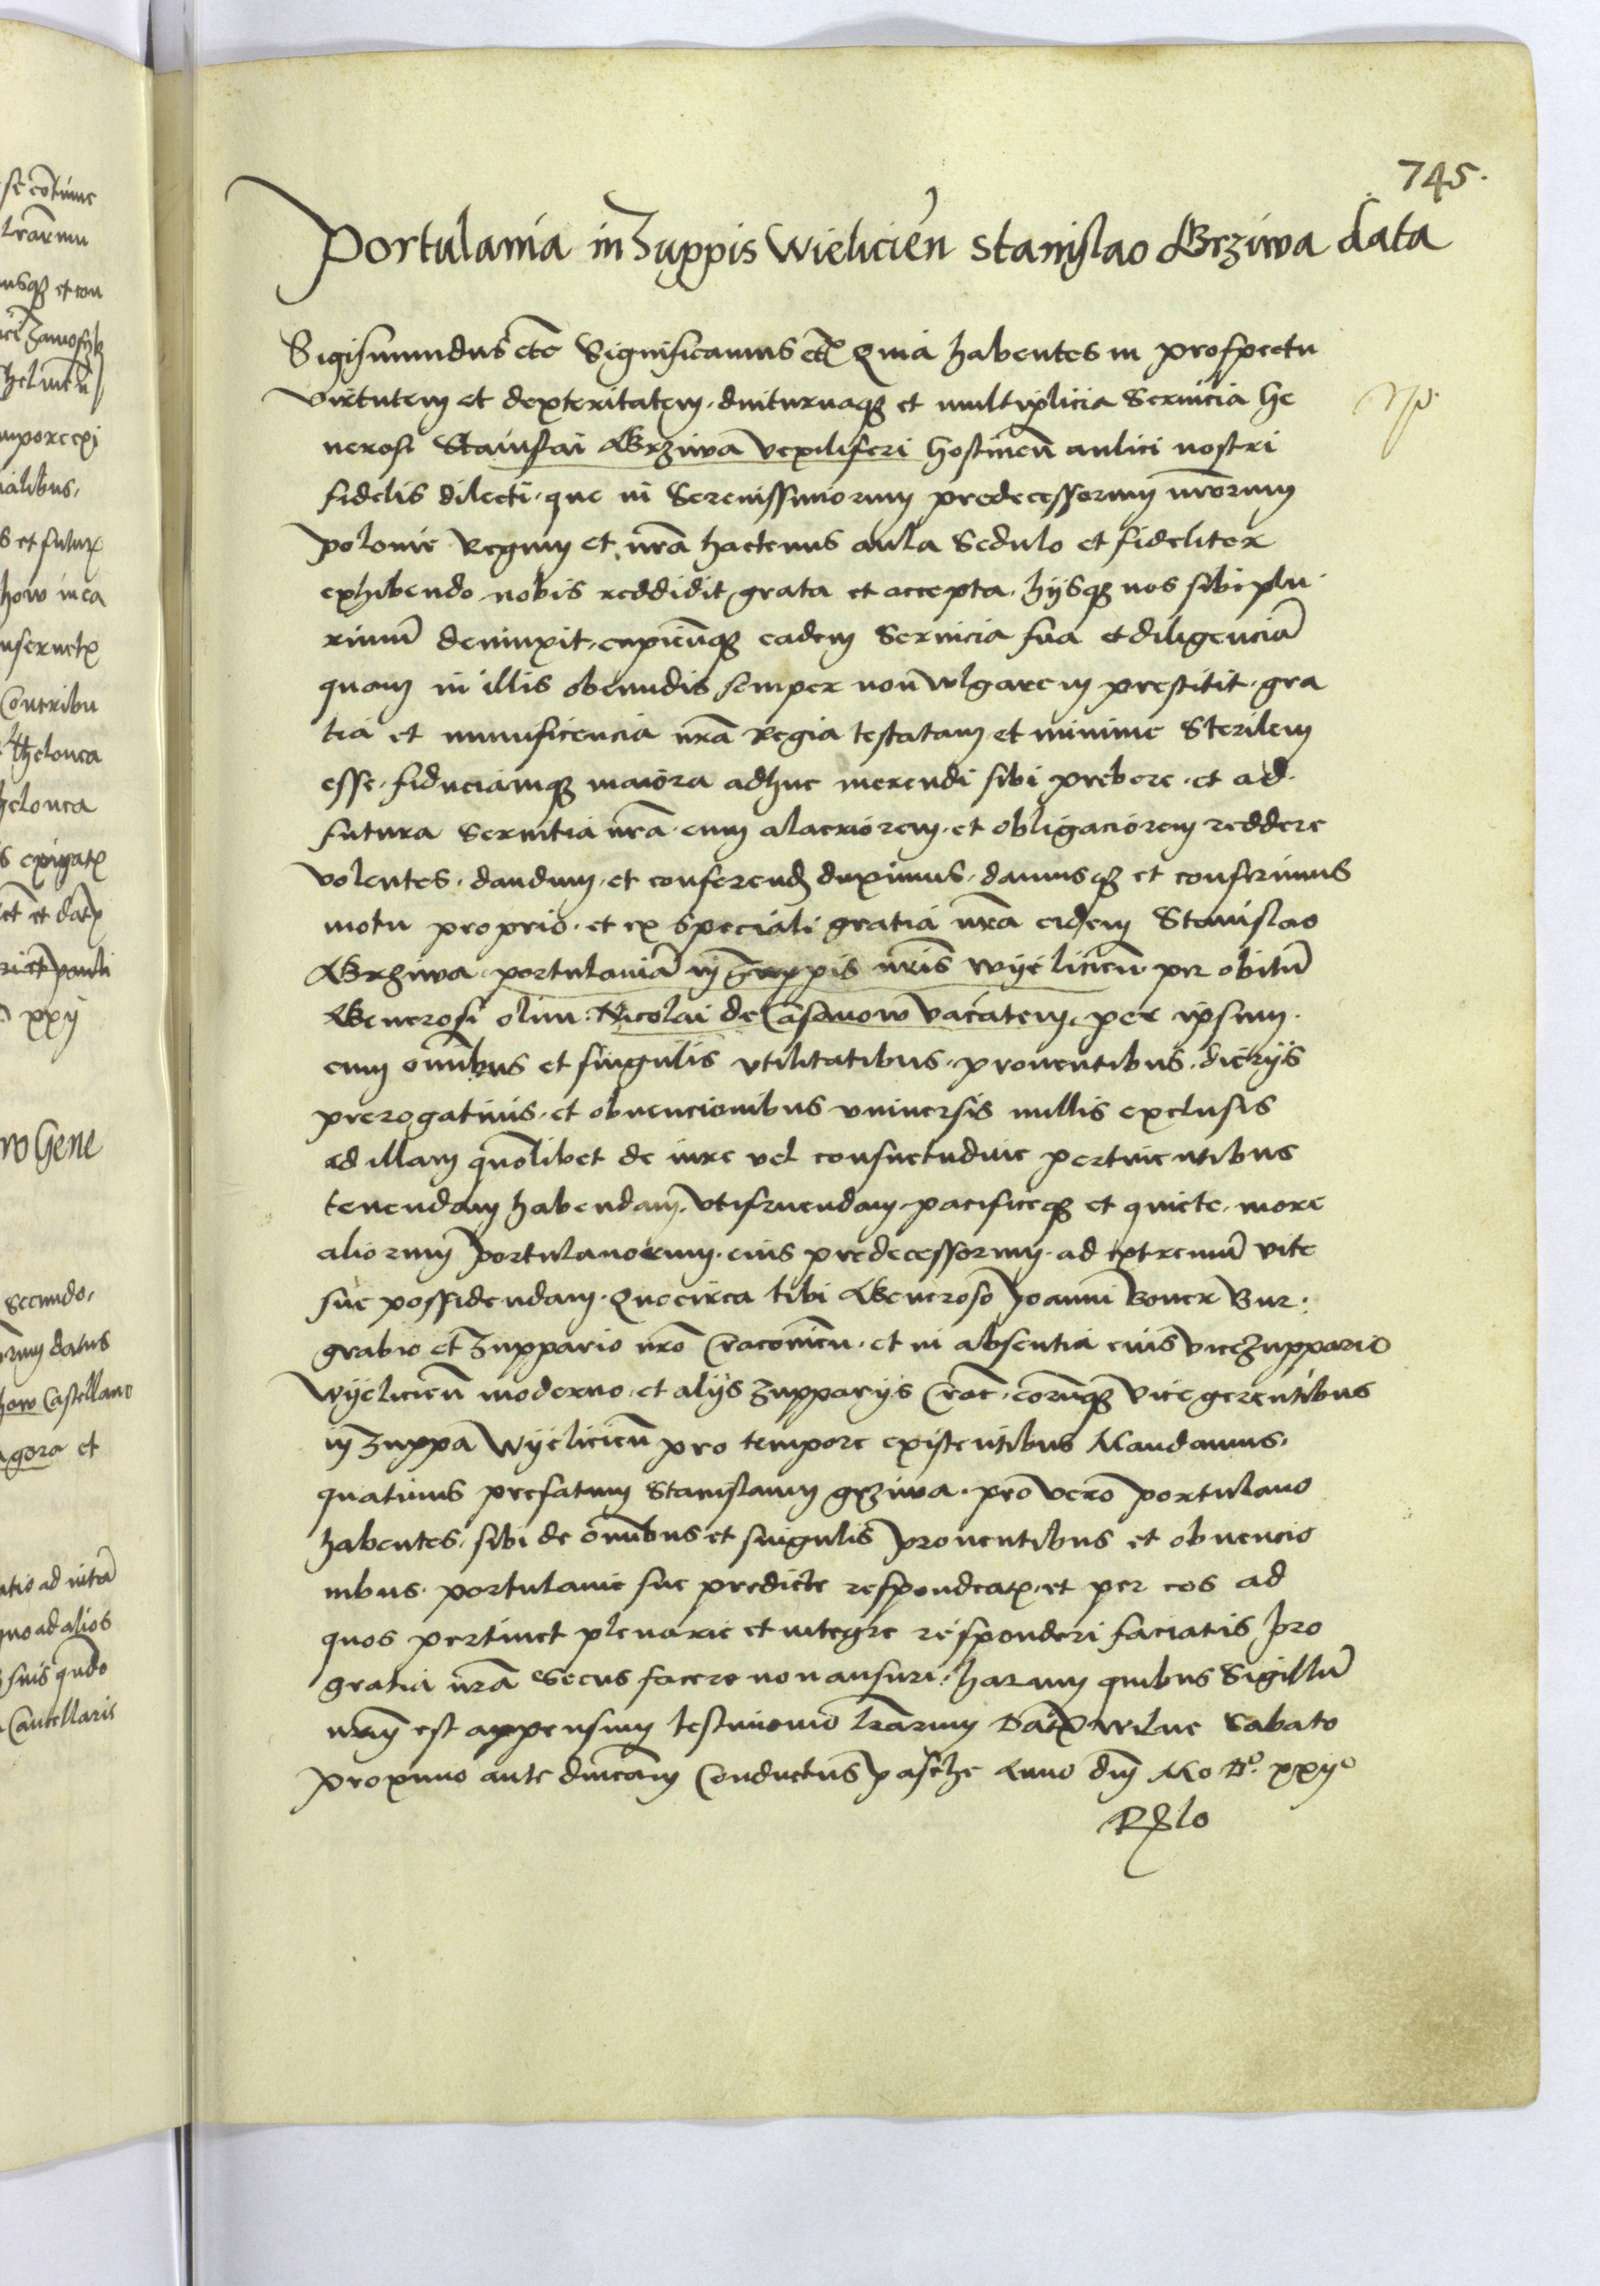 745.
Portulania in Zuppis Wielicień Stanislao Grziwa data
Sigismundus etc Significamus etc Quia habentes in prospectu
virtutem et dexteritatem, diuturnaque et multiplicia Seruicia Ge
nerosi Stanislai Grziwa vexiliferi Hostineñ aulici nostri
fidelis dilecti, que in Serenissimorum predecessorum nrorum
polonie Regum et nra hactenus aula Sedulo et fideliter
exhibendo nobis reddidit grata et accepta, hijsque nos sibi plu
rimum deuinxit, cupientesque eadem Seruicia sua et diligenciam
quam in illis obeundis semper non wlgarem prestitit, gra
tia et munificencia nra Regia testatam et minime Sterilem
esse, fiduciamque maiora adhuc merendi sibi prebere, et ad
futura Seruitia nra eum alacriorem, et obligaciorem reddere
volentes, dandum, et conferend duximus, damusque et conferimus
motu proprio, et ex speciali gratia nra eidem Stanislao
Grziwa portulaniam in Zuppis nris Wyelicień per obitum
Generosi olim Nicolai de Casanow vacatem, per ipsum
cum omibus et singulis vtilitatibus, prouentibus,
prerogatiuis, et obuencionibus vniuersis nullis exclusis
ad illam quolibet de iure vel consuetudine pertinentibus
tenendam habendam, vtifruendam, pacificeque et quiete, more
aliorum portulanorum, eius predecessorum, ad extremum vite
sue possidendam. Quocirca tibi Generoso Joanni Boner Bur
grabio et Zuppario nro Cracouień, et in absentia eius vicezuppario
Wyelicień moderno, et alijs zupparijs Crac, eorumque vicegerentibus
in Zuppa Wyelicień pro tempore existentibus Mandamus,
quatinus prefatum Stanislaum grziwa, pro vero portulano
habentes, sibi de omibus et singulis prouentibus et obuencio
nibus, portulanie sue predicte respondeatis, et per eos ad
quos pertinet plenarie et integre responderi faciatis, pro
gratia nra Secus facere non ausuri, harum quibus Sigillum
nrum est appensum testimonio lrarum Datum Wilne Sabato
proximo ante dnicam Conductus pasche Anno dni Mo Do. xxijo